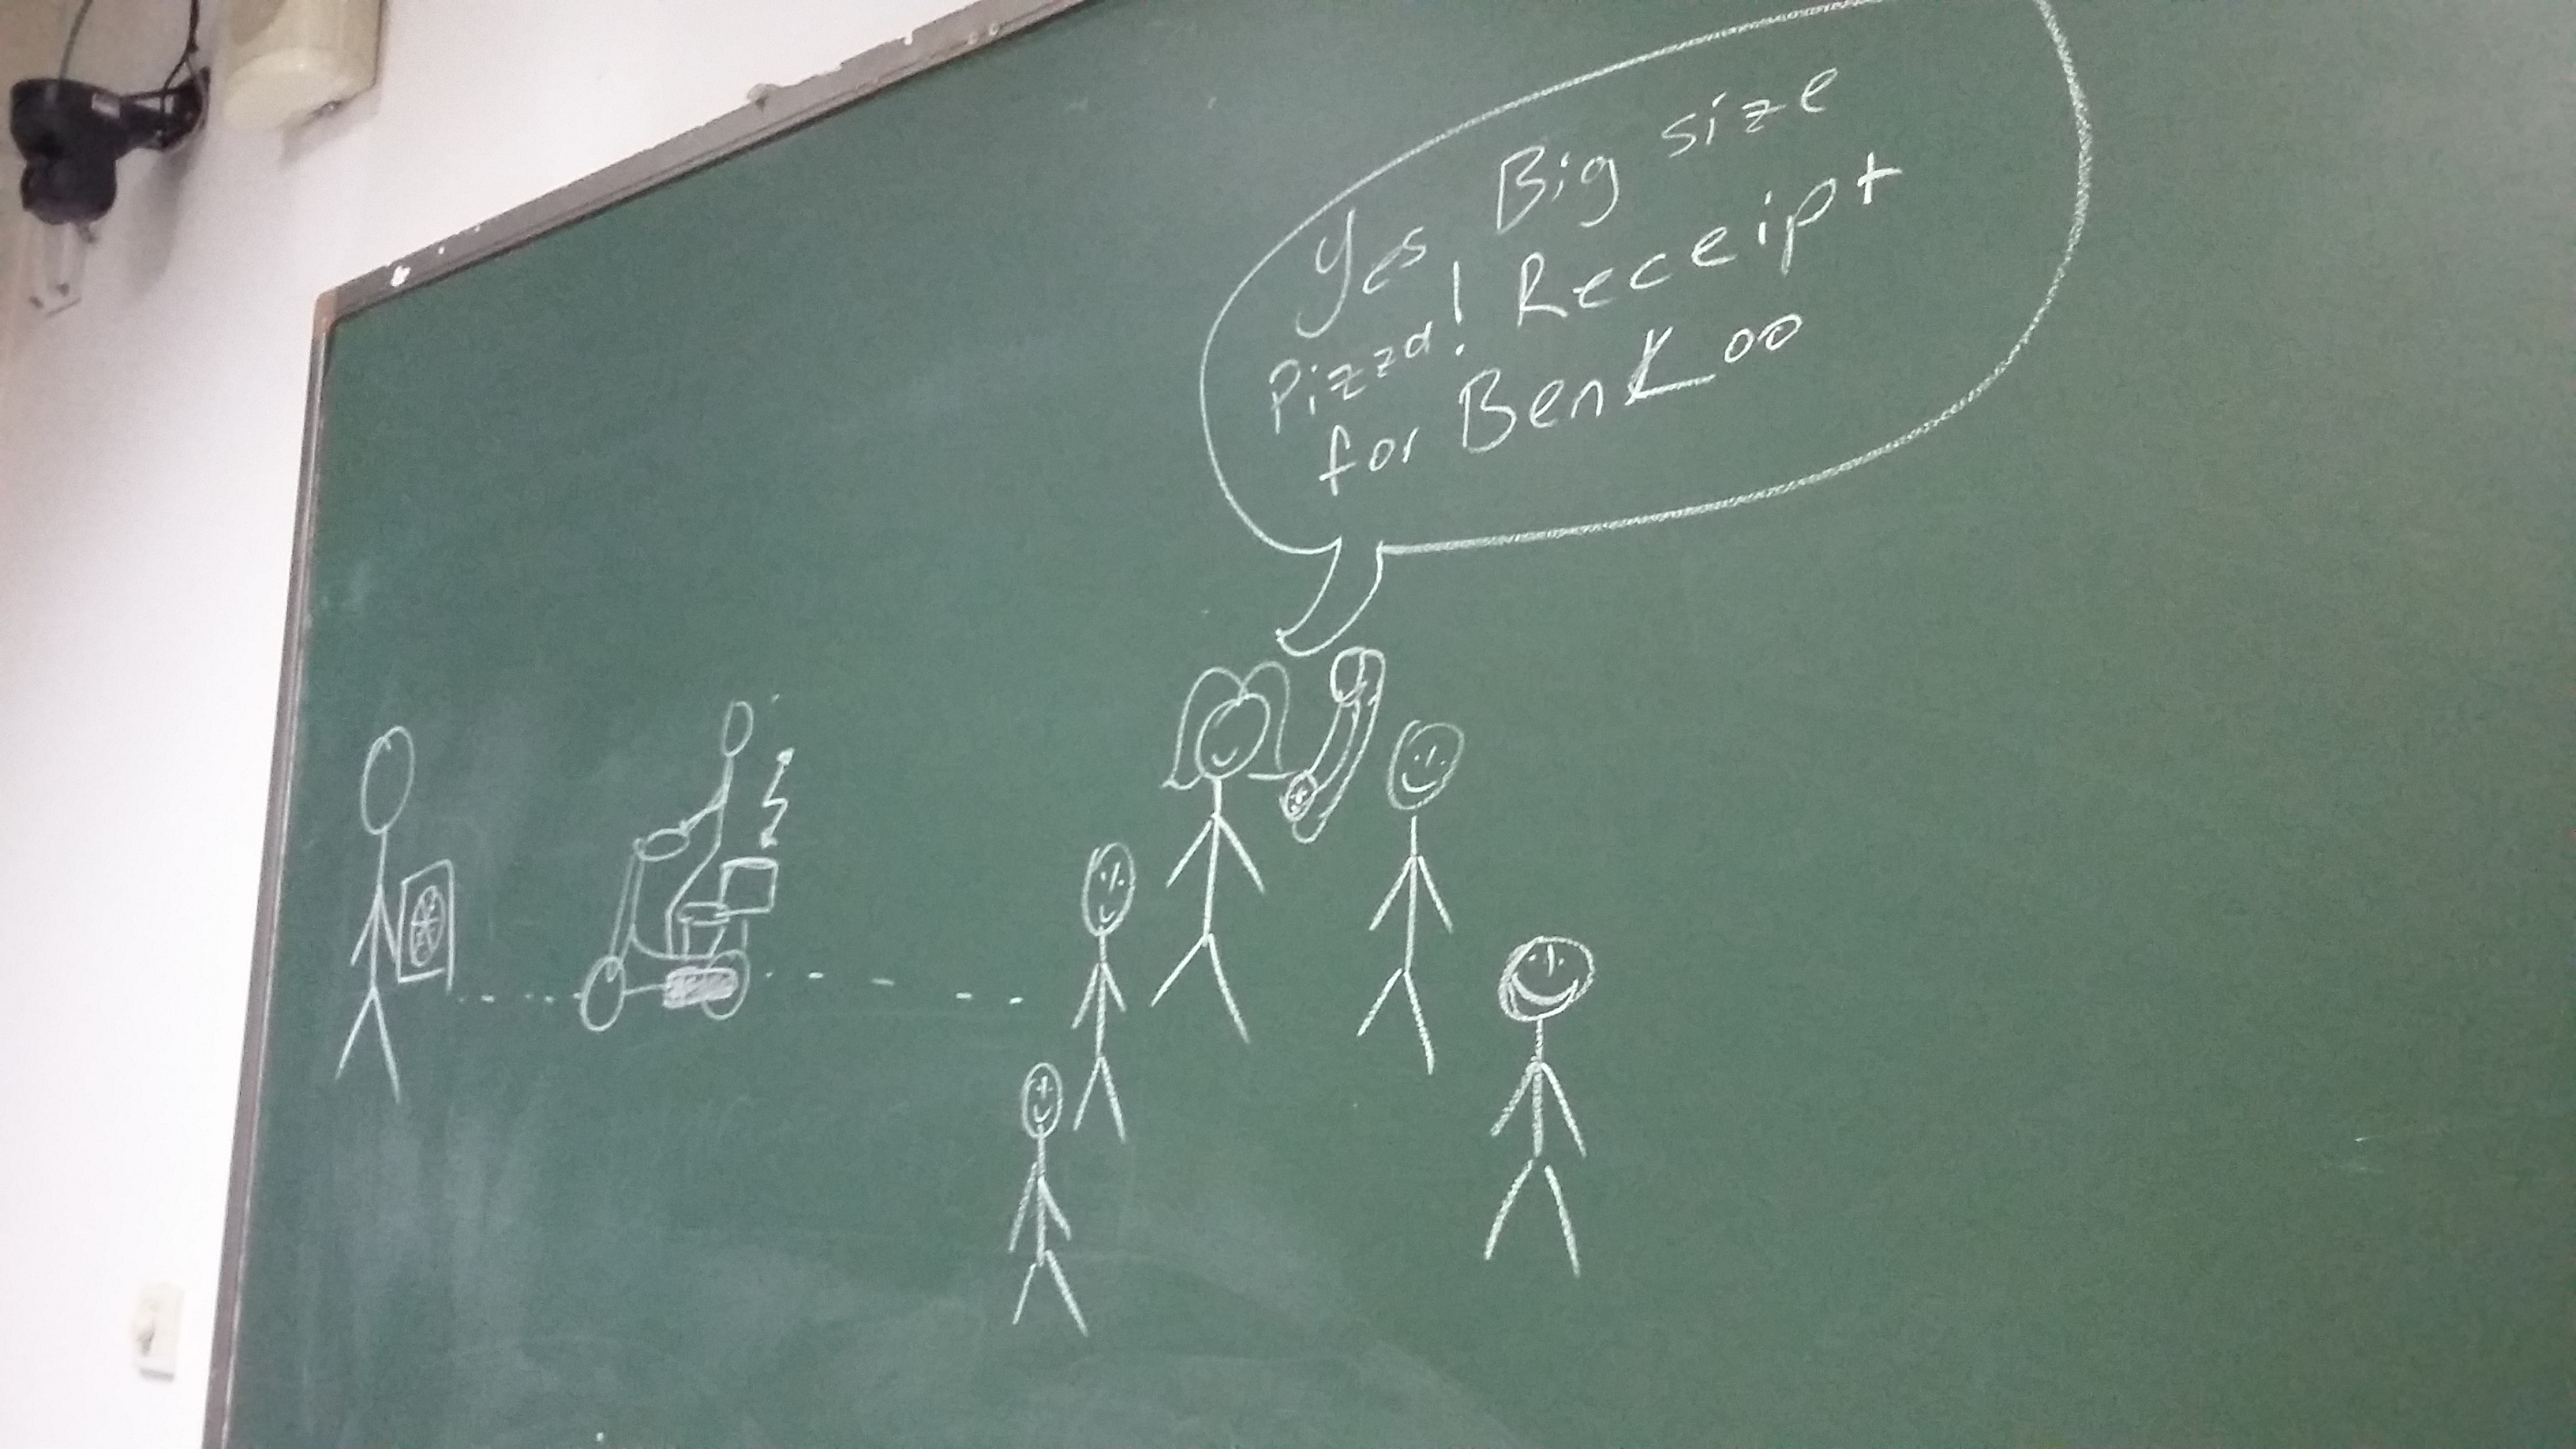 Yes Big size
Pizza! Receipt
for Ben Koo